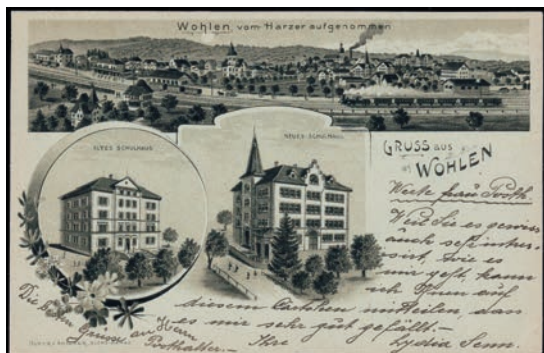 Wohlen, vom Harzer aufgenommen
ALTES SCHULHAUS
NEUES SCHULHAUS
GRUSS aus
WOHLEN
Werte Frau Posth.
Weil Sie es gewiss
auch sehr intres-
sirt, wie es
mir geht, kann
ich Ihnen auf
diesem Kärtchen mitteilen, dass
es mir sehr gut gefällt.–
Ihre
Lydia Senn.
Die besten Grüsse an Herrn
Posthalter.–